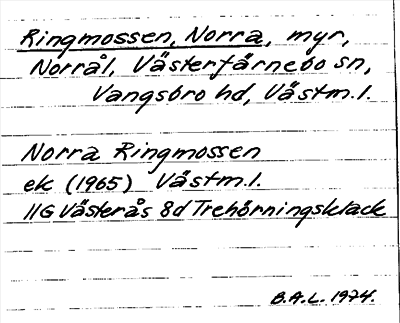 Ringmossen, Norra, myr,
Norrål, Västerfärnebo sn,
Vangsbro hd, Västm.l.
Norra Ringmossen
ek (1965) Västm.l.
11G Västerås 8d Trehörningsklack
B.A.L. 1974.